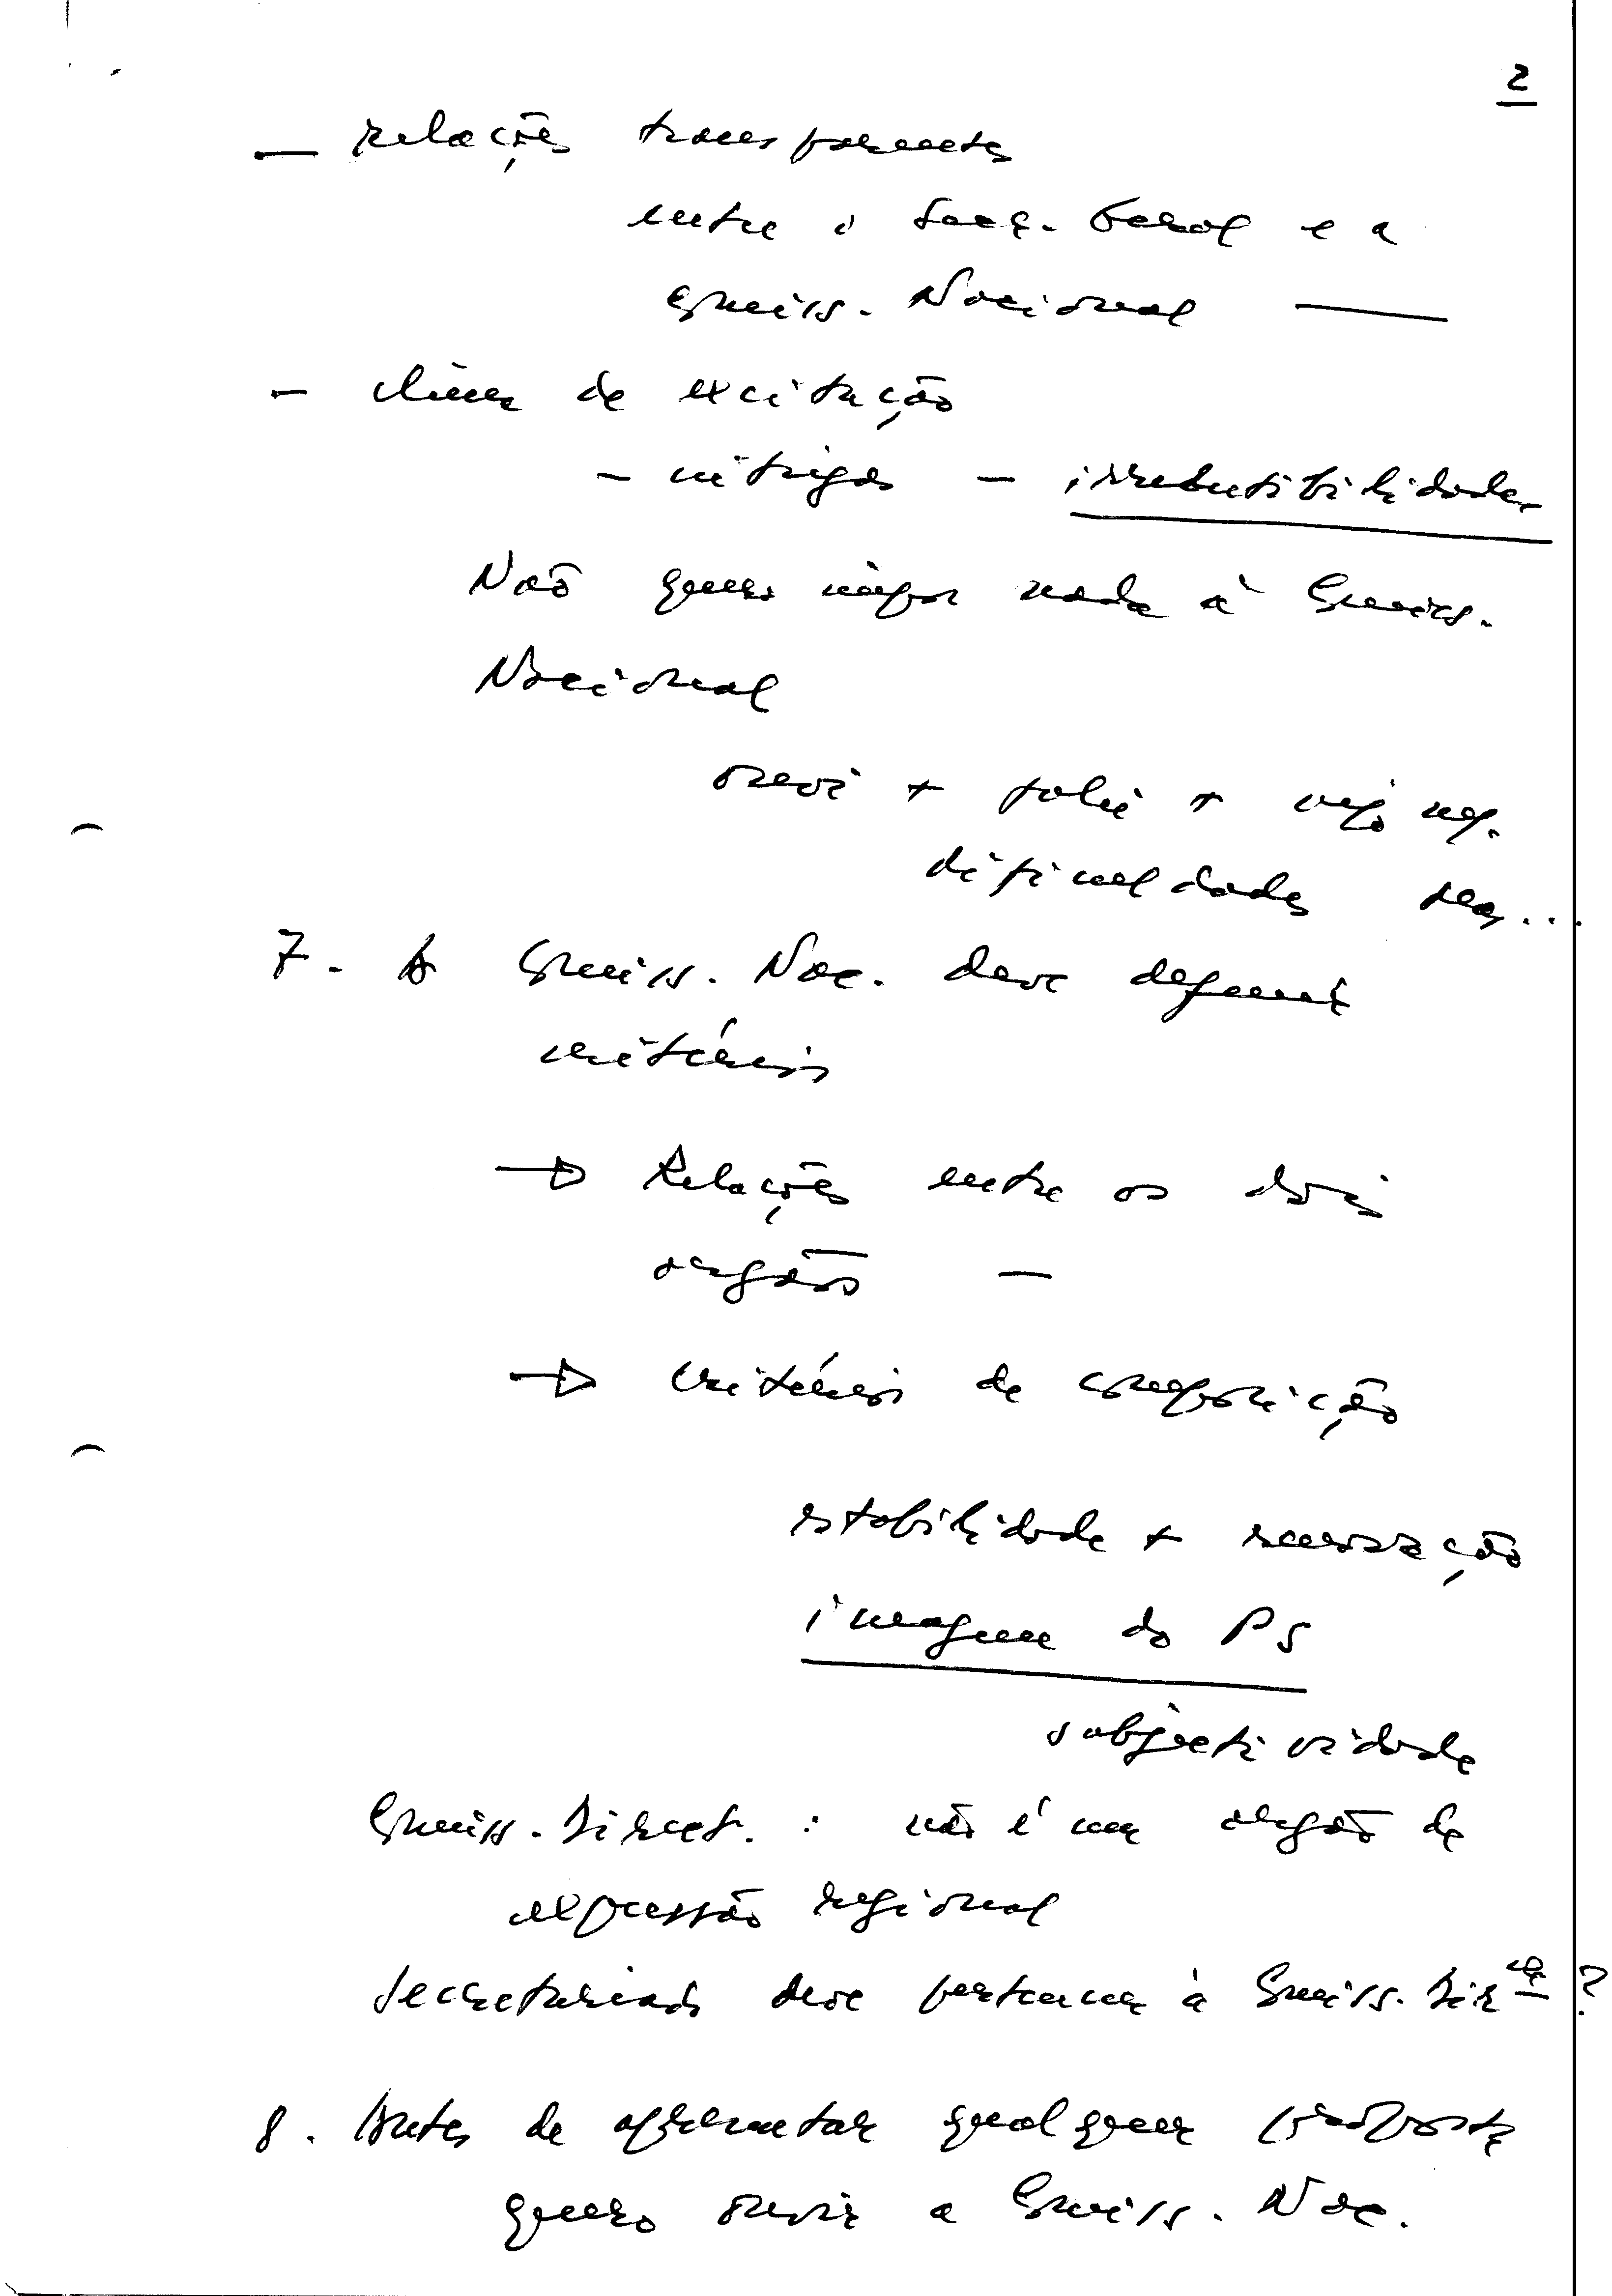 2
— relações transparentes
entre o Secr. Geral e a
Comiss. Nacional —
- clima de excitação
- intrigas - irredutibilidades
Não quero impor nada à Comiss.
Nacional
ouvi + falei + vejo
dificuldades
7. A Comiss. Nac. deve definir
critérios
→ Relações entre os dois
orgãos —
→ Critérios de composição
estabilidade + renovação
imagem do PS
subjectividade
Comiss. Direct. : não é um orgão de
expressão regional
Secretariado deve pertencer à Comiss. Dir ?
8. Antes de apresentar qualquer proposta
quero ouvir a Comiss. Nac.